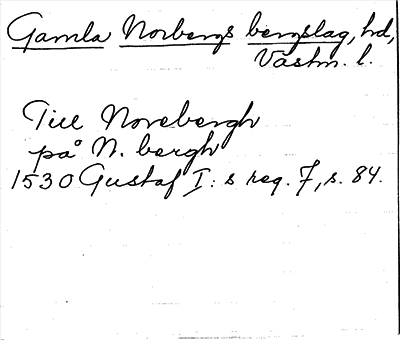 Gamla Norbergs bergslag, hd,
Västm. l.
Till Norebergh
på N. bergh
1530 Gustaf I:s reg. 7, s. 84.